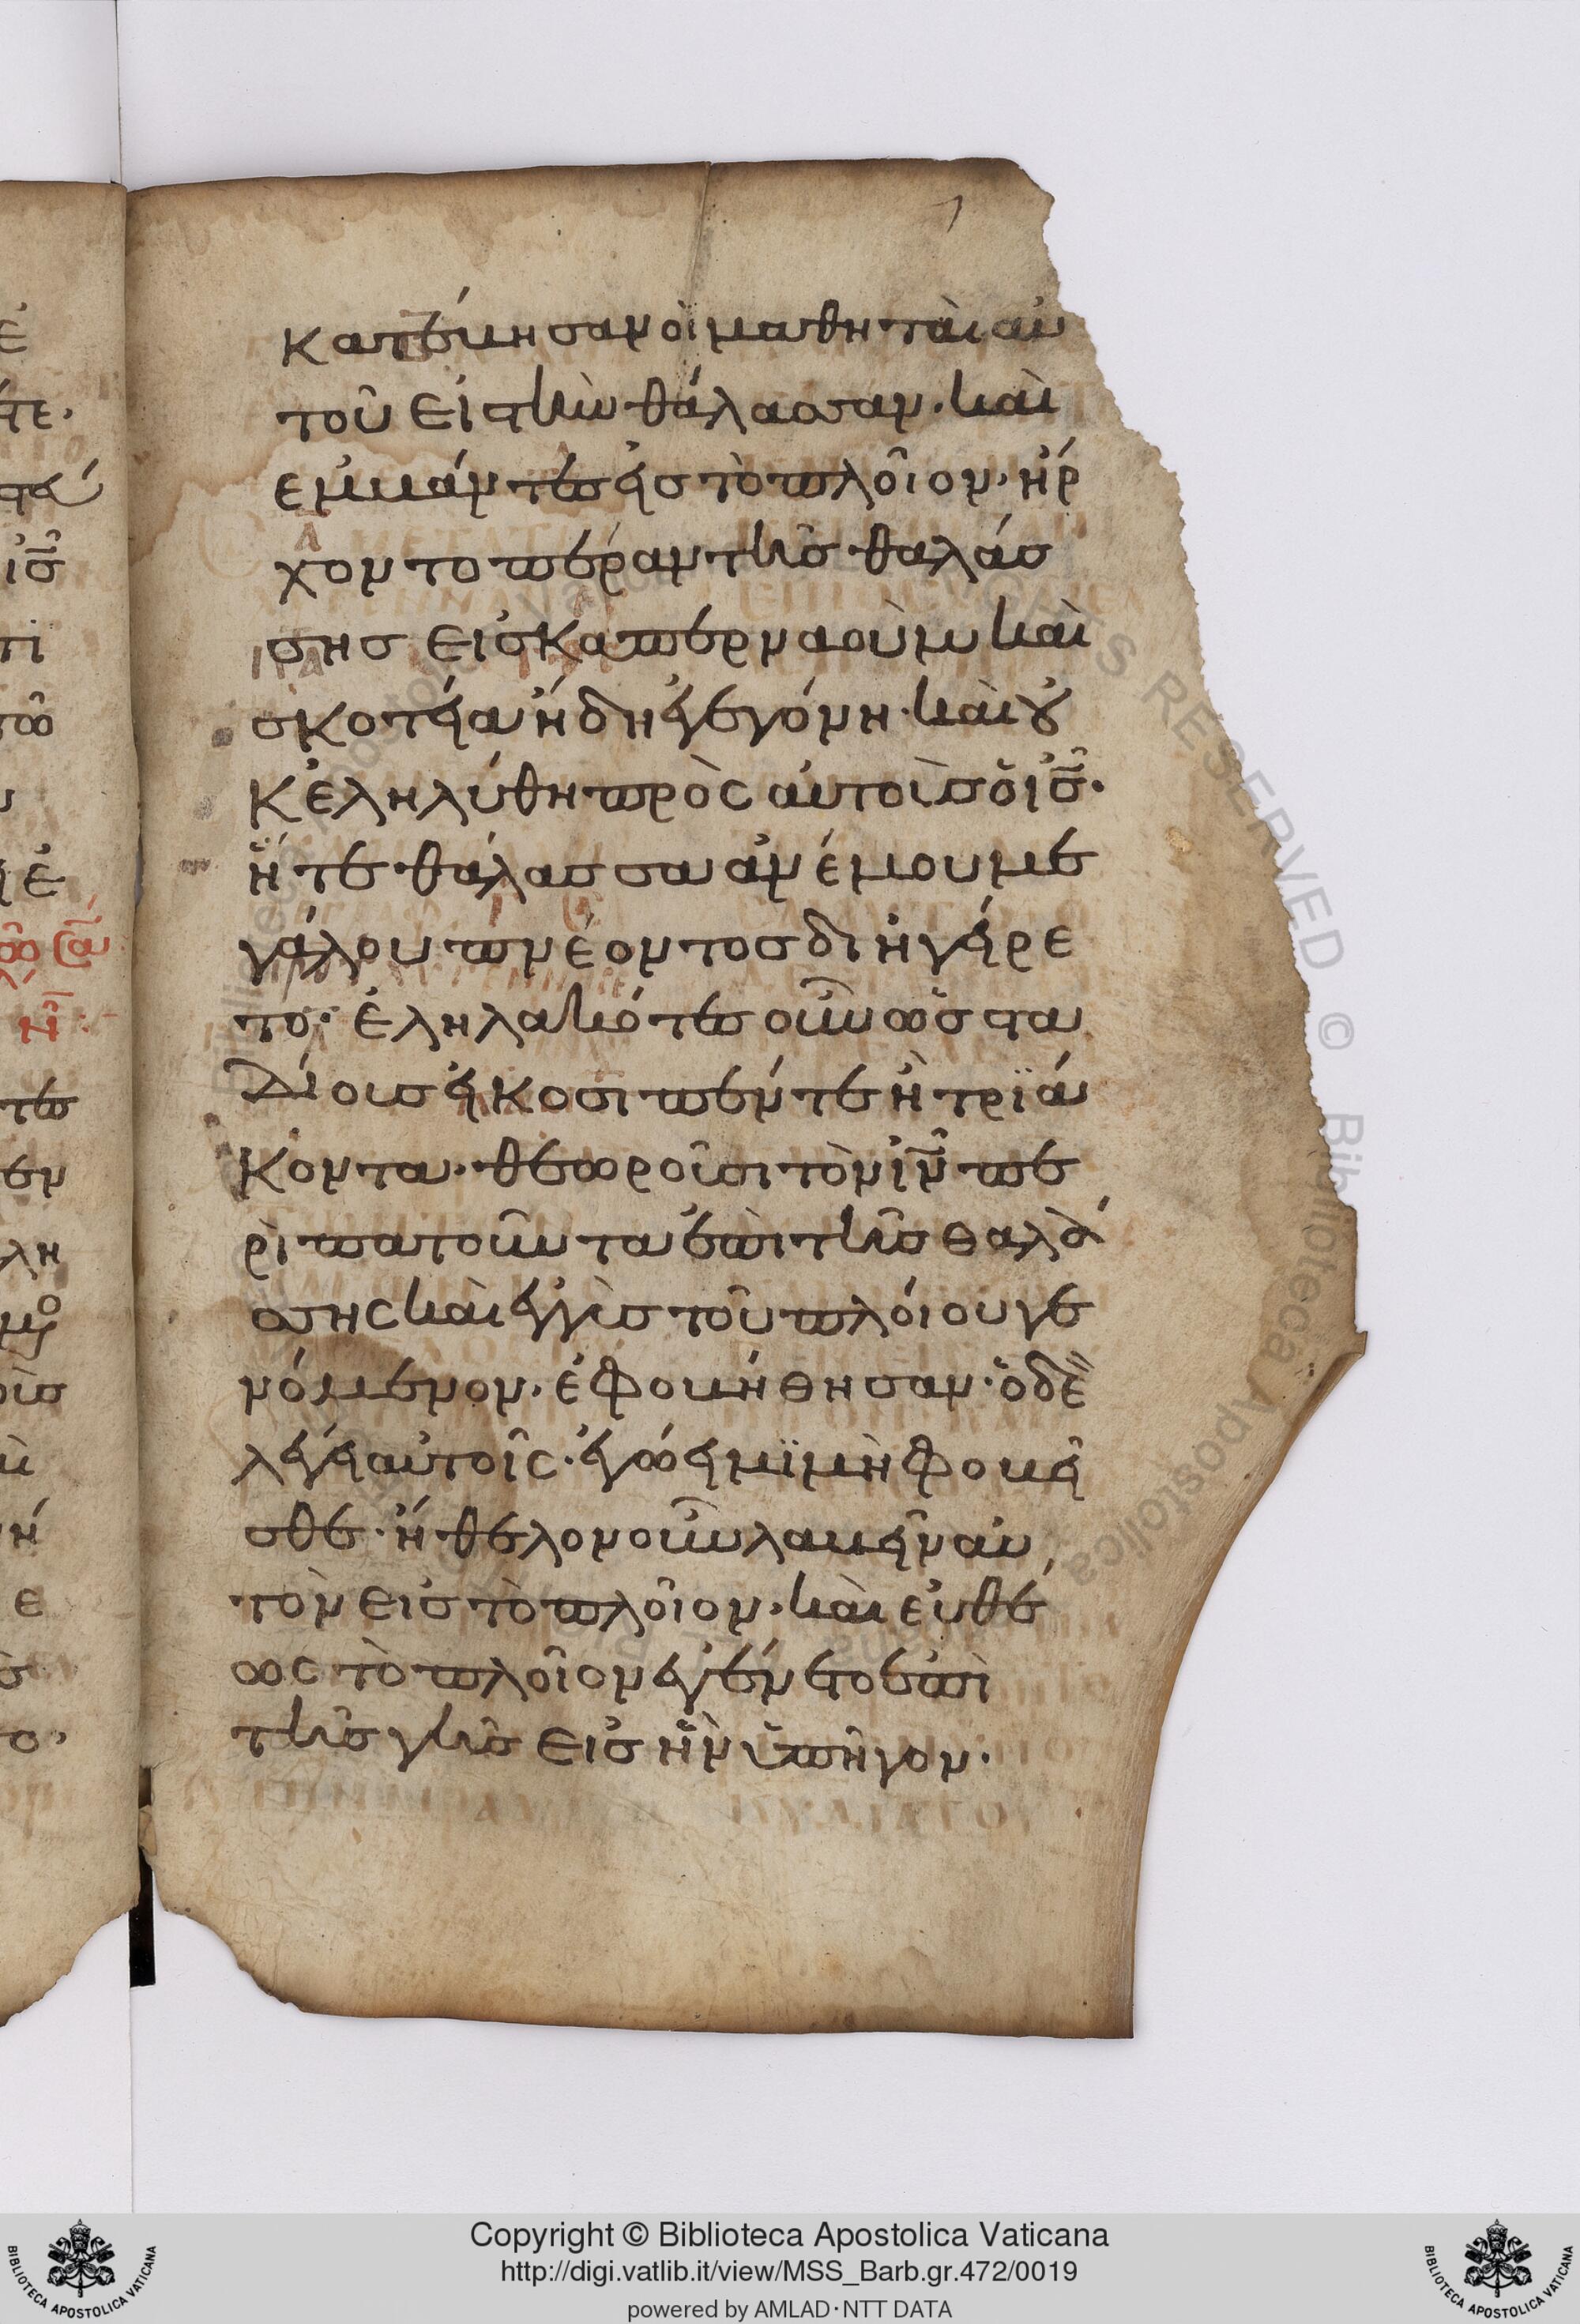 κατέβησαν ὁι μαθηταὶ αὐ
τοῦ εἰς τὴν θάλασσαν. καὶ
ἐμβάντες εἰς τὸ πλοῖον, ἤρ
χοντο πέραν τῆς θαλάσ
σης εἰς καπερναοὺμ καὶ
σκοτεία ἤδη ἐγεγόνη. καὶ οὐ
κ ἐληλύθη πρὸς αὐτοὺς ὁ ἰς̅.
ἥ τε θάλασσα ἀνέμου με
γάλου πνέοντος διηγείρε
το. ἐληλακότες οὖν ὡς στα
δίους εἴκοσι πέντε ἢ τριά
κοντα. θεωροῦσι τὸν ἰν̅ πε
ριπατοῦντα ἐπὶ τῆς θαλά
σσης καὶ ἐγγὺς τοῦ πλοίου γε
νόμενον. ἐφοβήθησαν. ὁ δὲ
λέγει αὐτοῖς. ἐγώ εἰμι μὴ φοβεῖ
σθε. ἤθελον οὖν λαβεῖν αὐ
τὸν εἰς τὸ πλοῖον. καὶ εὐθέ
ως τὸ πλοῖον ἐγένετο ἐπὶ
τῆς γῆς εἰς ἣν ὑπῆγον.
Copyright © Biblioteca Apostolica Vaticana
http://digi.vatlib.it/view/MSS_Barb.gr.472/0019
powered by AMLAD·NTT DATA